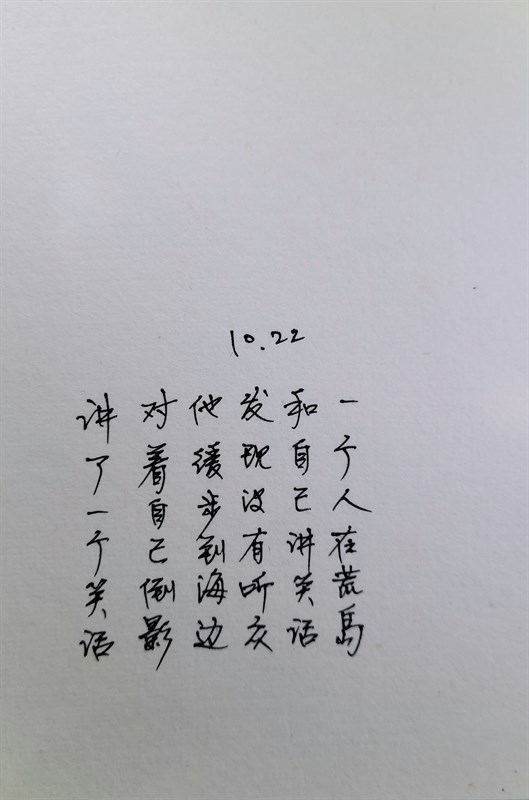 10.22
一个人在荒岛
和自己讲笑话
发现没有听众
他缓步到海边
对着自己倒影
讲了一个笑话